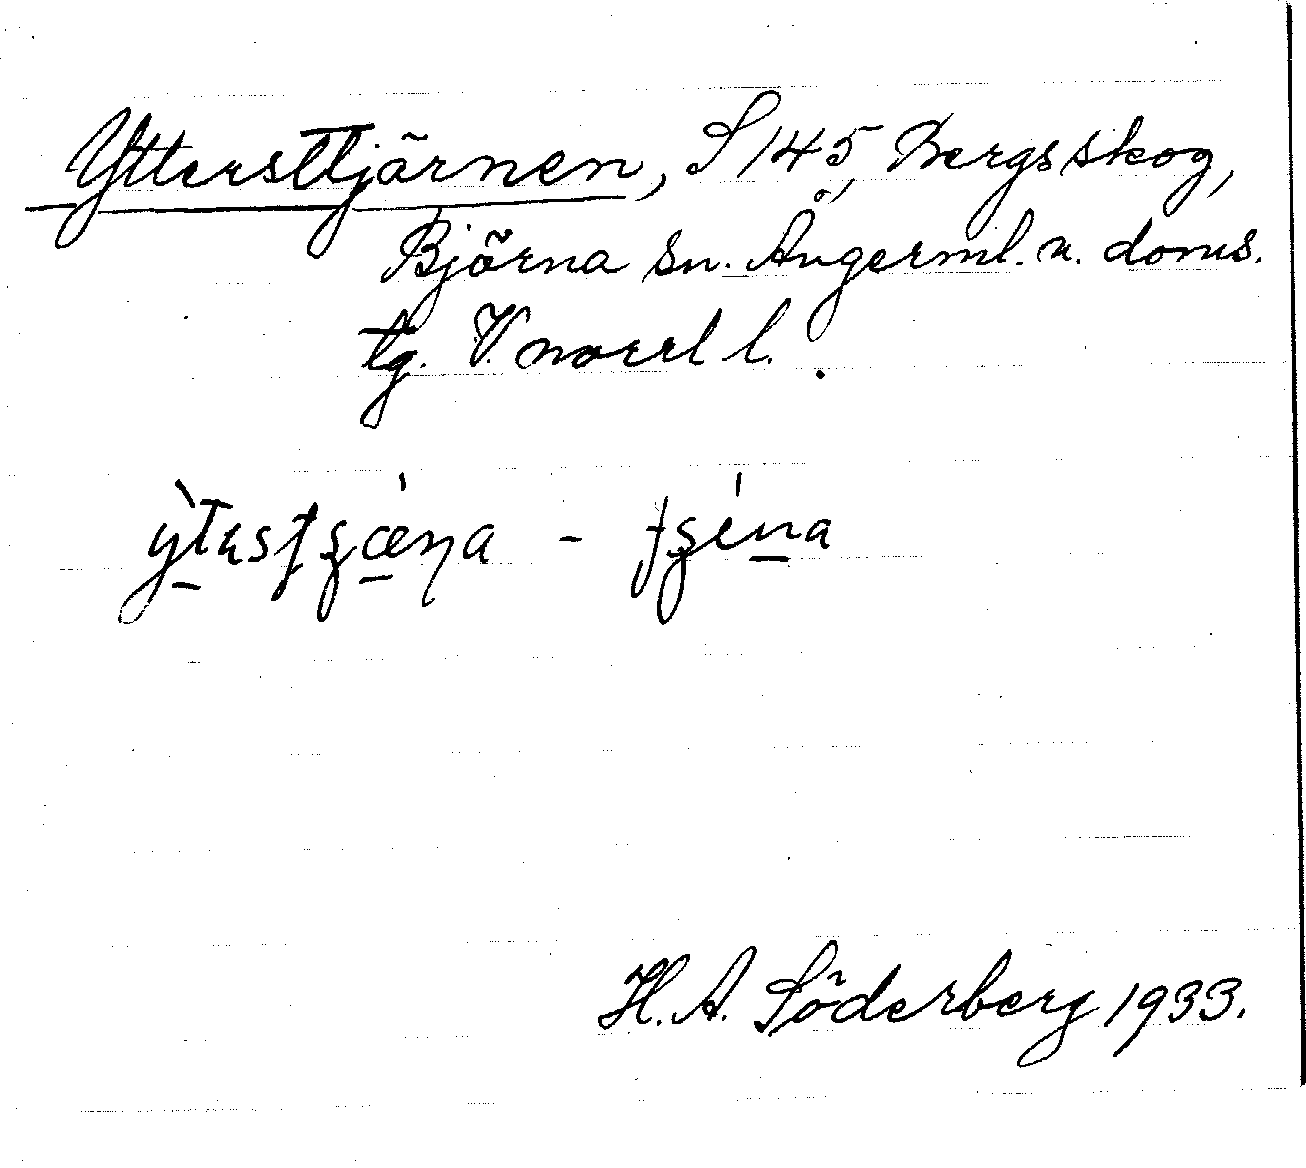 Yttersttjärnen, S 145, Bergsskog,
Björna sn. Ångerml. n. doms.
tg. V norrl l.
H. A. Söderberg 1933.